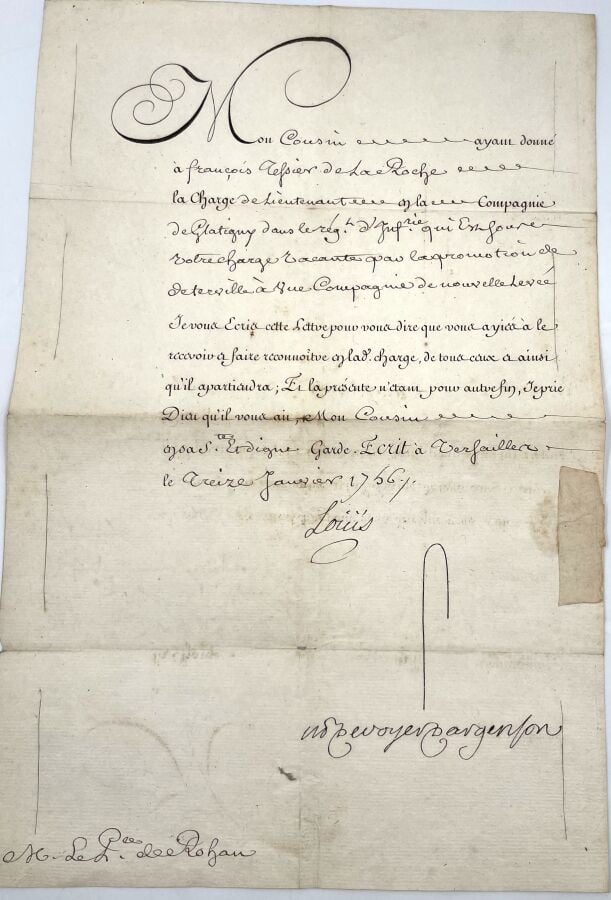 Mon Cousin ayant donné
à françois Tessier de La Roche
la Charge de Lieutenant en la Compagnie
de Glatigny dans le rég.t d'Inf.rie qui Est sous
Votre charge Vacante par la promotion de
deterville à Vne Compagnie de nouvelle Levée
Je vous Ecris cette Lettre pour vous dire que vous ayiés à le
recevoir et faire reconnoître en lad.e charge, de tous ceux et ainsi
qu'il apartiendra; Et la présente n'étant pour autre fin, Je prie
Dieu qu'il vous ait, Mon Cousin
en sa S.te Et digne Garde. Ecrit à Versailles
le Treize Janvier 1756.
Loüis
M De voyer Dargenson
M. Le P.ce de Rohan